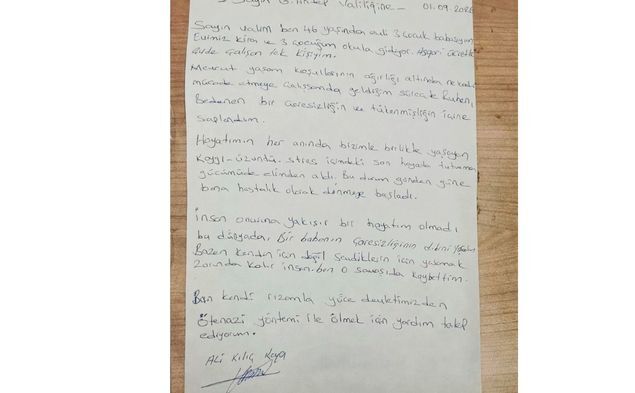 Sayın Gaziantep Valiliğine - 01.09.202
Sayın valim ben 46 yaşından evli 3 çocuk babasıyım
Evimiz kira ve 3 çocuğum okula gidiyor. Asgari ücretle
evde çalışan tek kişiyim.
Mevcut yaşam koşullarının ağırlığı altında ne kadar
mücade etmeye çalışsamda geldiğim süreçte Ruhen,
Bedenen bir çaresizliğin ve tükenmişliğin içine
saplandım.
Hayatımın her anında bizimle birlikte yaşayan
kaygı-üzüntü-stres içimdeki son hayata tutunma
gücümüde elimden aldı. Bu durum günden güne
bana hastalık olarak dönmeye başladı.
İnsan onuruna yakışır bir hayatım olmadı
bu dünyada, Bir babanın çaresizliğinin dibini
Bazen kendin için değil sevdiklerin için yaşamak
Zorunda kalır insan. ben o savaşıda kaybettim.
Ben kendi rızamla yüce devletimizden
Ötenazi yöntemi ile ölmek için yardım talep
ediyorum.
ALİ KILIÇ KAYA